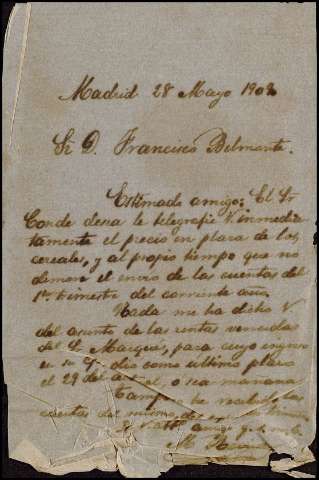 Madrid 28 Mayo 1902
Sr D. Francisco Belmonte.
Estimado amigo: El Sr
Conde desea le telegrafie V. inmedia
tamente el precio en plaza de los
cereales, y al propio tiempo que no
demore el envio de las cuentas del
1er trimestre del corriente año.
Nada me ha dicho V
del asunto de las rentas vencidas
del Sr Marqués, para cuyo ingreso
se dió como último plazo
el 29 del actual, o sea mañana
Tampoco he recibido las
cuentas del mismo,
amigo